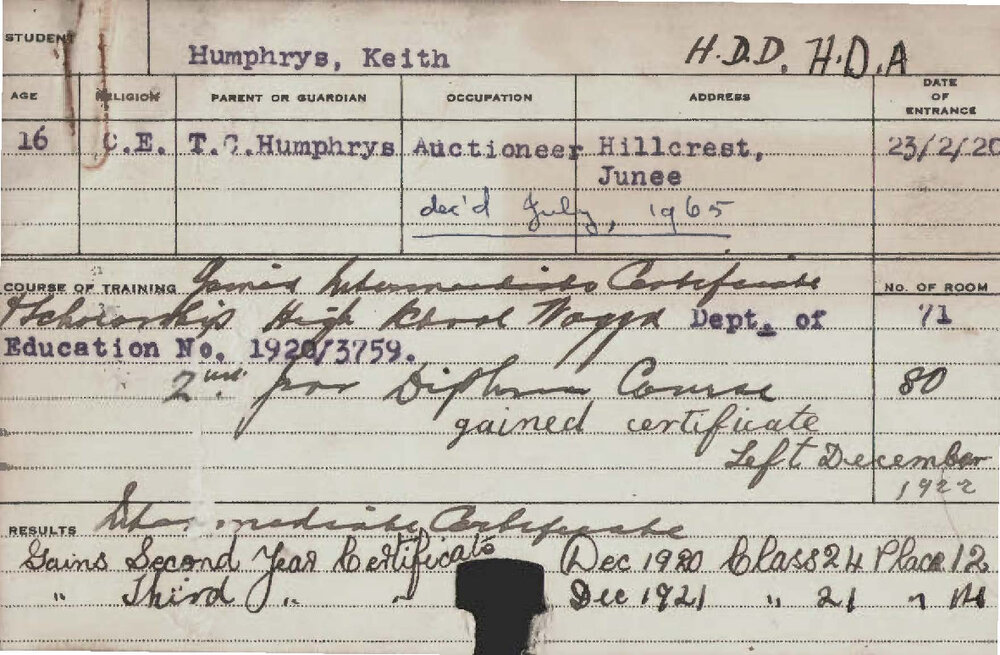 STUDENT Humphrys, Keith H.D.D. H.D.A
AGE RELIGION PARENT OR GUARDIAN OCCUPATION ADDRESS DATE OF ENTRANCE
16 C.E. T.C.Humphrys Auctioneer Hillcrest, 23/2/20
Junee
dec'd July, 1965
COURSE OF TRAINING Gains Intermediate Certificate No. OF ROOM
& Scholarship High School Wagga Dept. of 71
Education No. 1920/3759.
2nd year Diploma Course 80
gained certificate
Left December
1922
RESULTS Intermediate Certificate
Gains Second Year Certificate Dec 1920 Class 24 Place 12
" Third " " Dec 1921 " 21 " 14